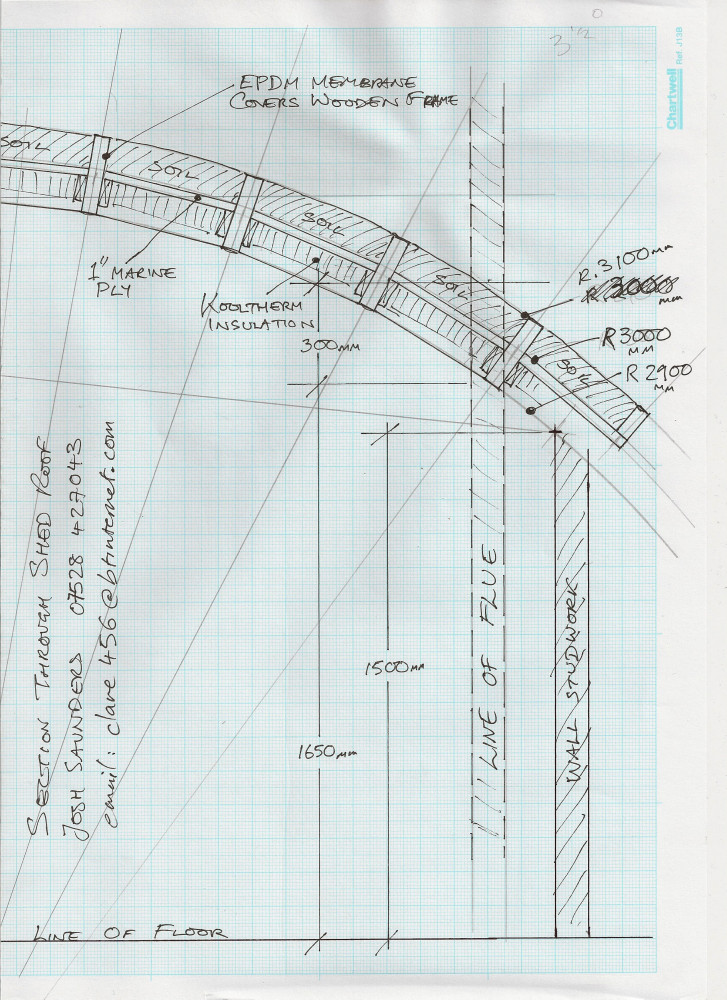 3 1/2 0
Chartwell Ref. J13B
EPDM MEMBRANE
COVERS WOODEN FRAME
SOIL
SOIL
SOIL
SOIL
SOIL
1" MARINE
PLY
KOOLTHERM
INSULATION
300MM
R.3100MM
MM
R3000
MM
R 2900
MM
SECTION THROUGH SHED ROOF
JOSH SAUNDERS 07528 427043
email: clare456@btinternet.com
1500MM
1650MM
LINE OF FLUE
WALL STUDWORK
LINE OF FLOOR